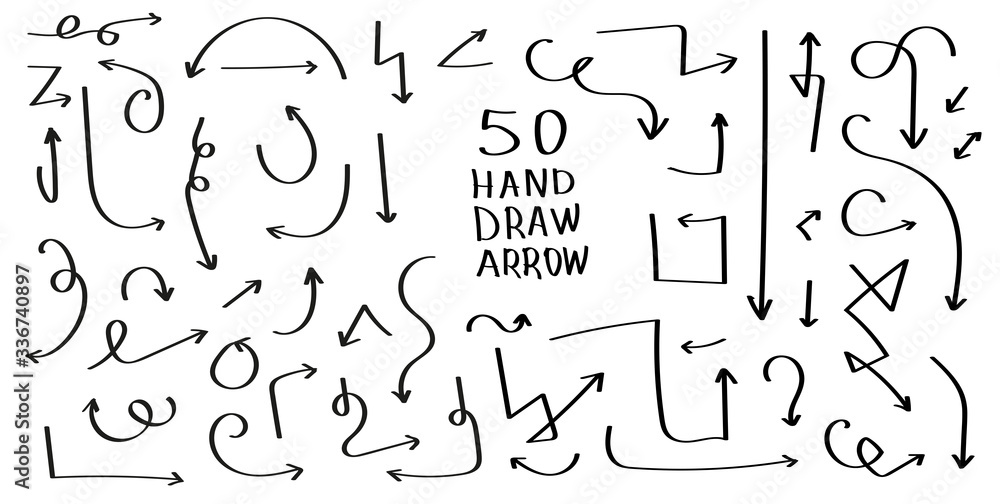 50
HAND
DRAW
ARROW
Adobe Stock | #336740897